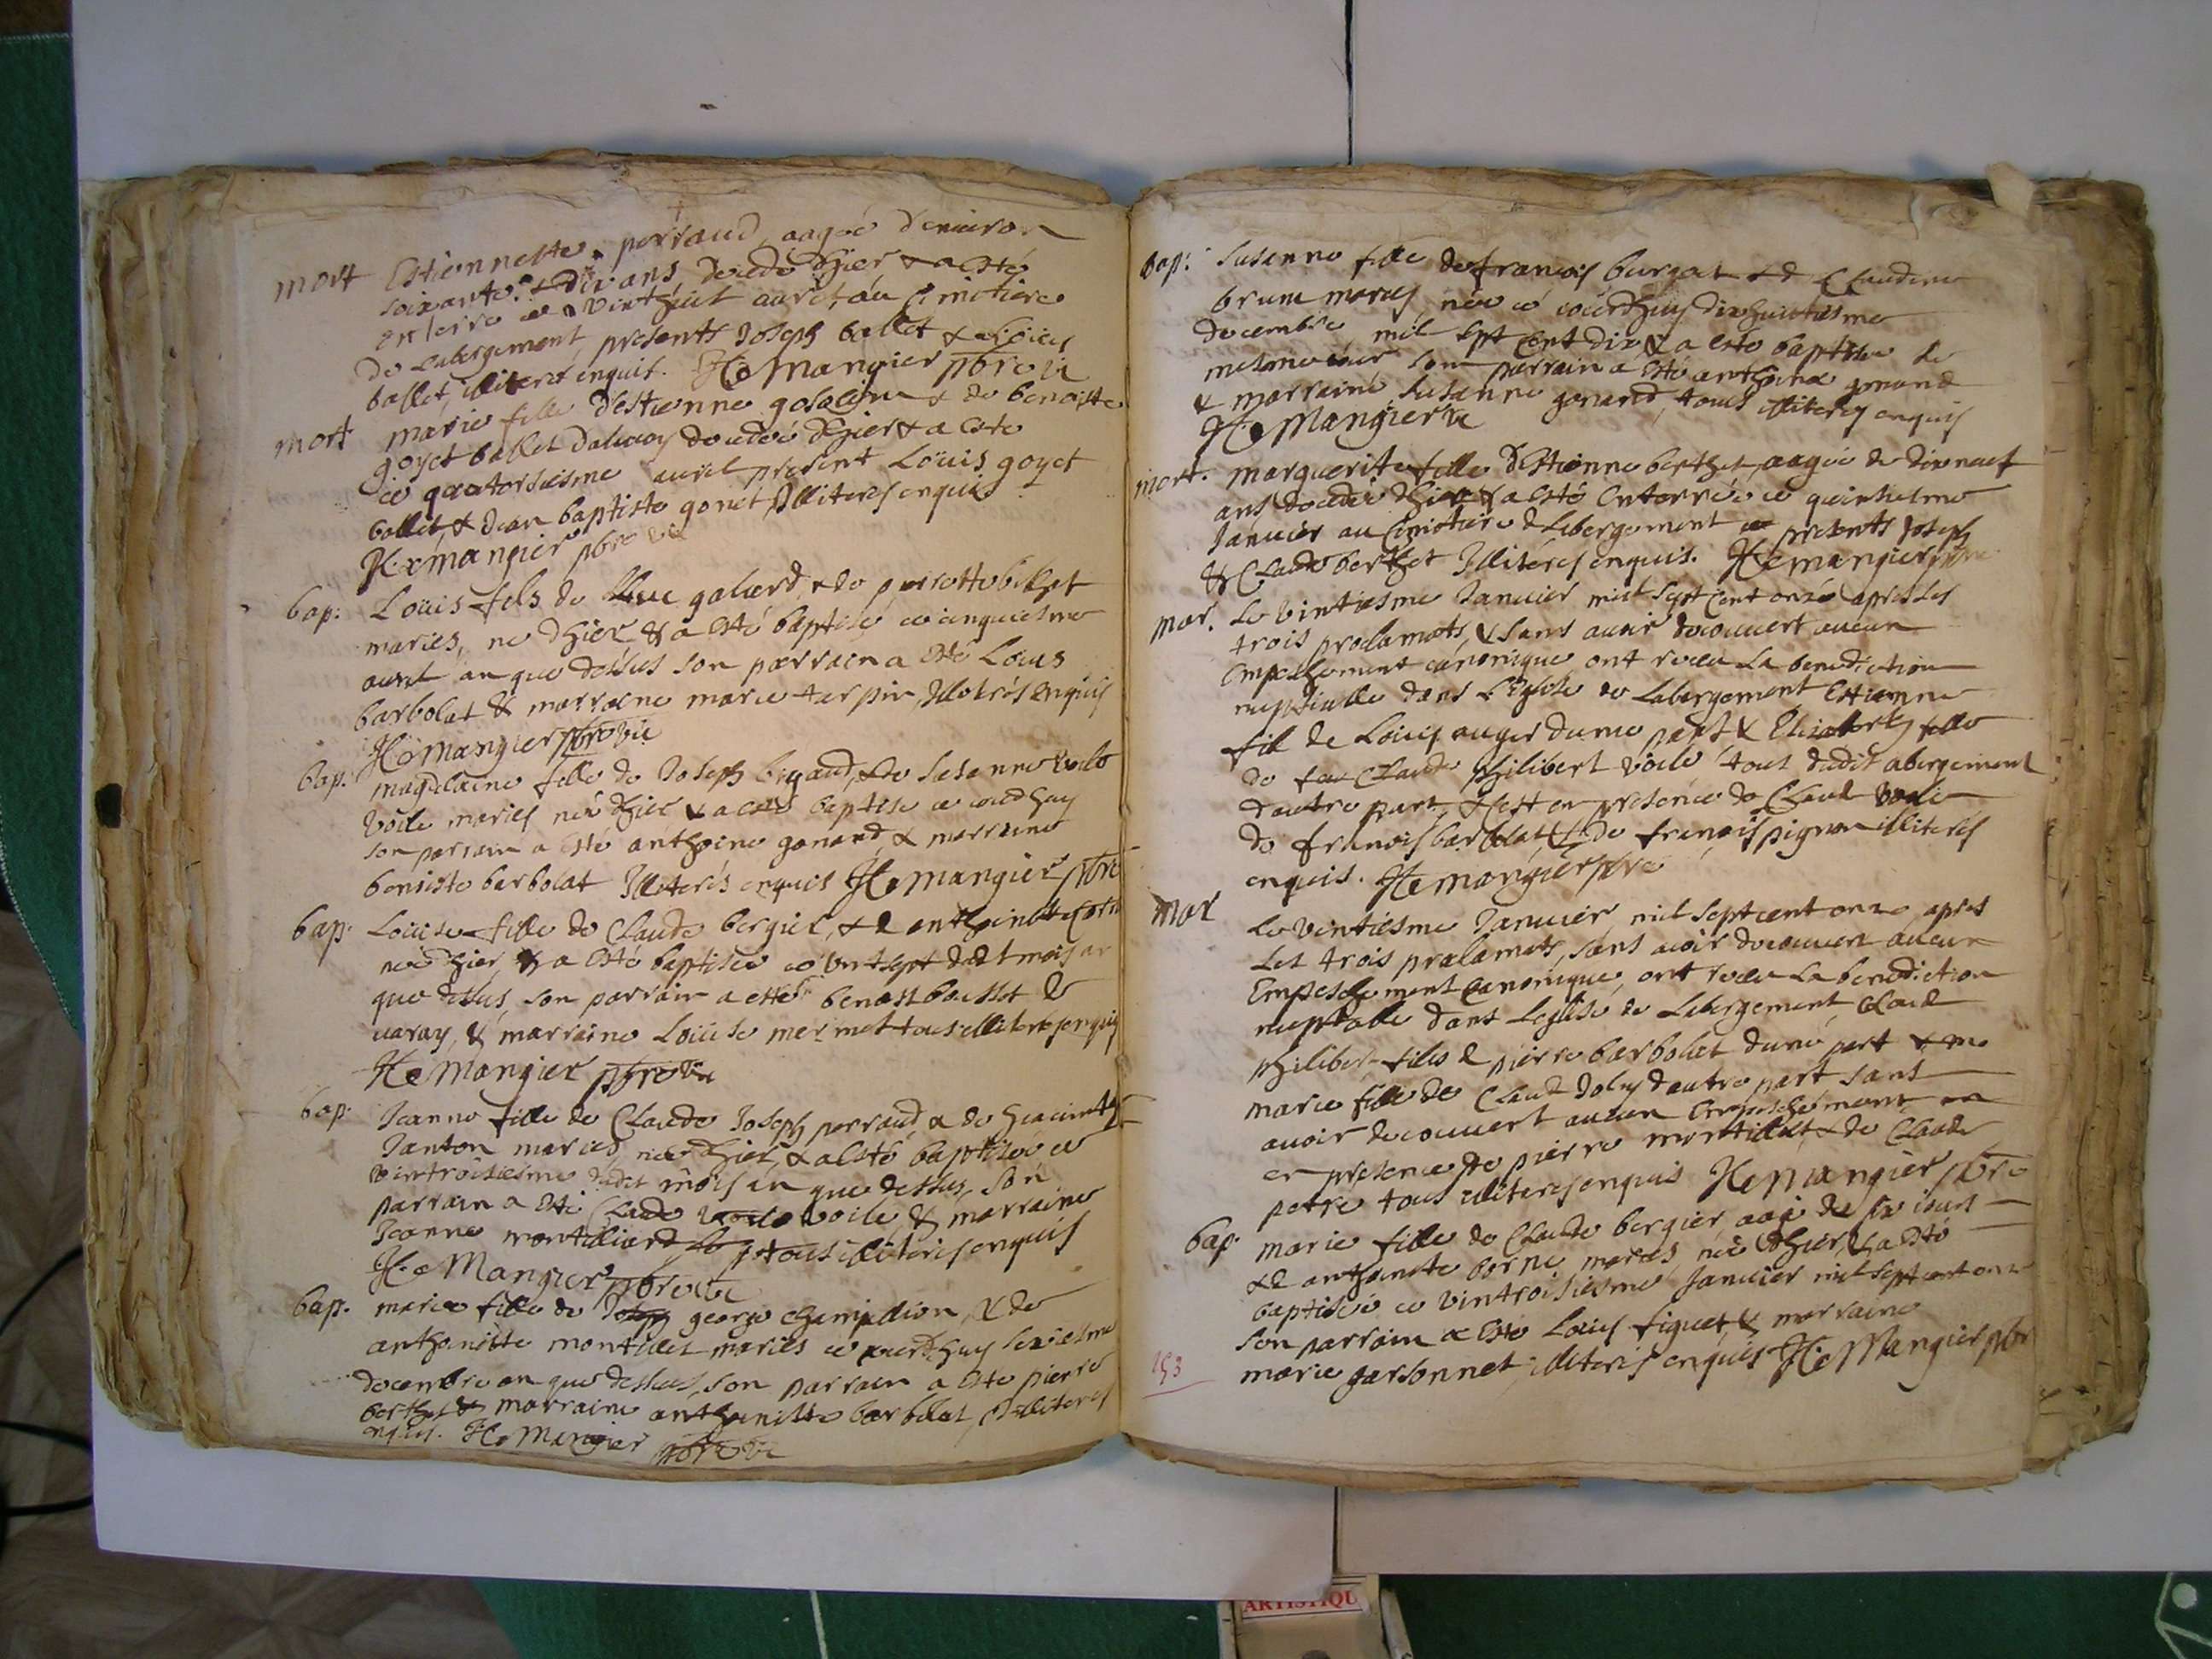 mort Estiennette perraud aagée d'enuiron
soixante & dix ans decede dhier & a esté
enterre ce vinthuit auril au Cimetiere
de Labergement, presents Joseph ballet & 
ballet, illiteré enquis. He Mangier pbre vic
mort marie fille d'estienne & de benoitte
goyet ballet decedée dhier & a esté
ce quatorsiesme auril present Loüis goyet
ballet & Jean baptiste gonet Illiteres enquis
He mangier pbre vic
bap: Loüis fils de Luc galierd, & de pierrette billet
mariés, ne dhier & a esté baptisé ce cinquiesme
auril an que dessus son parrain a esté Loüis
barbolat & marraine marie terpin, Illiterés enquis
He Mangier pbre vic
bap: magdelaine fille de Joseph brigaud, & de Susanne voile
voile mariés née dhier & a esté baptisé ce iourdhuy
son parrain a esté anthoine gonand, & marraine
benoiste barbolat Illiterés enquis He Mangier pbre
bap: Loüise fille de Claude bergier, & d anthoinette
née dhier & a esté baptisée ce vintsept dudt mois an
que dessus, son parrain a esté benoist boussot de
uaray, & marraine Loüise mermet tous illiterés enquis
He Mangier pbre vic
bap: Jeanne fille de Claude Joseph perraud & de hiacinthe
Janton mariés née dhier, & a esté baptisée ce
vintroisiesme dudit mois an que dessus, son
parrain a esté Claude voile voile & marraine
Jeanne montilliard tous illiterés enquis
He Mangier pbre vic
bap. marie fille de Joseph george champillion, & de
anthoinette montillet mariés ce iourdhuy seziesme
decembre an que dessus, son parrain a esté pierre
berthet & marraine anthoinette barbolat, Illiterés
enquis. He Mangier pbre vic
bap: Susanne fille de françois burgat & d Claudine
brun mariés, née ce iourdhuy dixhuictiesme
decembre mil sept cent dix & a esté baptisée le
mesme iour son parrain a esté anthoine gonand
& marraine Susanne gonand, tous illiterés enquis
He Mangier vic
mort. marguerite fille d'Estienne berthet, aagée de dixneuf
ans decedée dhier & a esté Enterrée ce quinziesme
Januier au Cimetiere d Lebergement ce presents Joseph
& Claude berthet Illiterés enquis. He mangier pbre
mar. Le vintiesme Januier mil sept cent onze apres les
trois proclamats, & sans auoir decouuert aucun
Empechement canonique ont receu La benediction
nuptialle dans L'Eglise de Labergement Estienne
fil de Loüis auger dune part & Elizabeth fille
de feu Claude philibert voile tout dudit abergement
dautre part, & c'est en presence de Claude voile
de françois barbolat & de françois pignon illiterés
enquis. He mangier pbre
mar Le vintiesme Januier mil sept cent onze apres
Les trois proclamats, sans auoir decouuert aucun
Empeschement Canonique, ont receu La benediction
nuptialle dans Leglise de Lebergement Claude
philibert fils d pierre barbolat dune part & me
marie fille de Claude doly dautre part sans
auoir decouuert aucun Empeschement en
en presence de pierre montillet & de Claude
petre tous illiterés enquis He Mangier pbre
bap. marie fille de Claude bergier aagé de six iours
& d anthoinette borne mariés, née dhier, & a esté
baptisée ce vintroisiesme Januier mil sept cent onze
son parrain a esté Loüis figuet, & marraine
marie garsonnet, illiterés enquis He Mangier pbr
153
ARTISTIQU